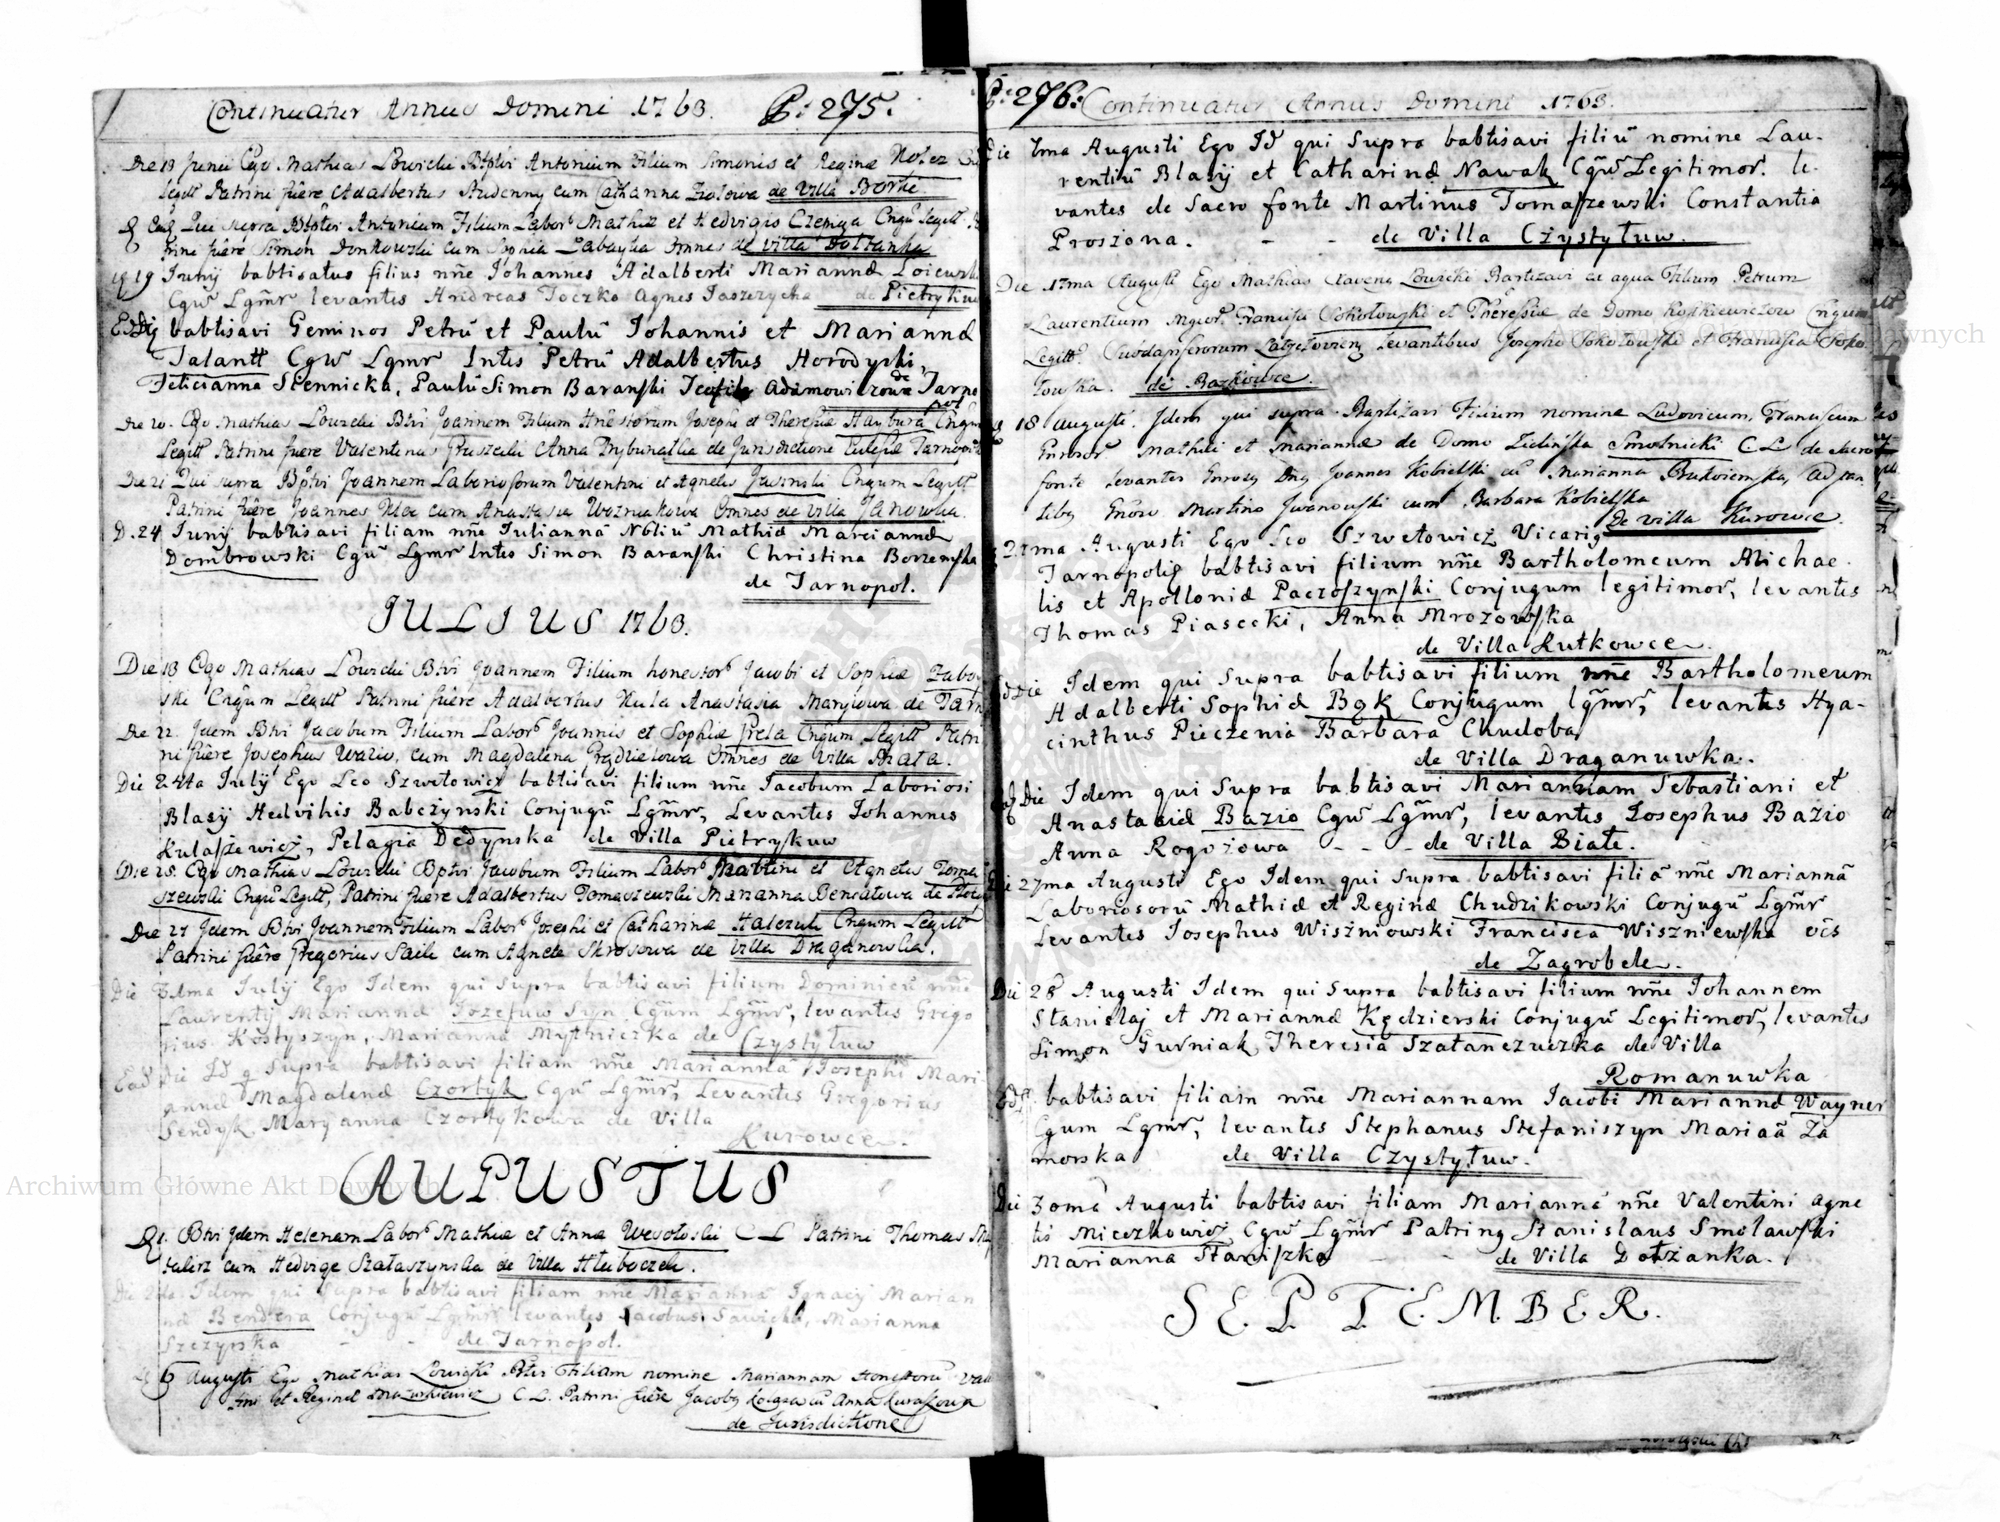 Continuatur Annus Domini 1763. P: 275.
Die 13 Junii Ego Mathias Łowicki Bptvi Antonium Filium Simonis et Reginæ Notez
Legitt Patrini fuêre Adalbertus cum Catharina de Villa Borki.
Qui supra Bptvi Antonium Filium Labor Mathiæ et Hedvigis Czeniga Cngū Legitt.
trini fuêre Simon Donkowski cum Sophia Labayka omnes de villa Dołżanka
19 Junij babtisatus filius nñe Johannes Adalberti Mariannæ
Cgū Lgmr levantes Andreas Toczko Agnes de Pietryków
Ed Dij babtisavi Geminos Petrū et Paulū Johannis et Mariannæ
Talantt Cgū Lgmr Intes Petrū Adalbertus Horodyski,
Felicianna Stennicka, Paulū Simon Baranski Teofila Adamowiczowa de Tarno
pol
Die 20. Ego Mathias Łowicki Btvi Joannem Filium Honestorum Josephi et Theresiæ Hanbura Cngum
Legitt Patrini fuêre Valentinus Pruszcki Anna Trybunalka de Jurisdictione
Die 21 Qui supra Bptvi Joannem Laboriosorum Valentini et Agnetis Jasinski Cngum Legitt
Patrini fuêre Joannes cum Anastasia Wozniakowa Omnes de villa Janowka.
D. 24 Junij babtisavi filiam nñe Juliannā Nbliū Mathiæ Mariannæ
Dombrowski Cgū Lgmr Intes Simon Baranski Christina Borzemska
de Tarnopol.
JULIUS 1763.
Die 13 Ego Mathias Łowicki Btvi Joannem Filium honestor Jacobi et Sophiæ Zabor
ski Cngum Legitt Patrini fuêre Adalbertus Kula Anastasia Maryiowa de Tarn
Die 22. Idem Btvi Jacobum Filium Labor Joannis et Sophiæ Greta Cngum Legitt Patri
ni fuêre Josephus cum Magdalena Omnes de Villa Biała.
Die 24ta Julij Ego Leo Szwetowicz babtisavi filium nñe Jacobum Laboriosi
Blasij Hedvihis Babczynski Conjugū Lgmr, Levantes Johannes
Kulaszewicz, Pelagia Dedynska de Villa Pietryskuw
Die 25. Ego Mathias Łowicki Bptvi Jacobum Filium Labor Mathei et Agnetis Toma
szewski Cngū Legitt, Patrini fuere Adalbertus Tomaszewski Marianna Denkałowa de
Die 27 Idem Btvi Joannem Filium Labor Josephi et Catharinæ Halczuk Cngum Legitt
Patrini fuêre Gregorius Saik cum Agnete Skrosowa de Villa Draganowka.
Die 31ma Julij Ego Idem qui supra babtisavi filium Dominicū nñe
Laurentij Mariannæ Jozefuw Syn Cgum Lgmr, levantes Grego
rius Kostyszyn, Marianna Mytniczka de Czystyłuw
Ead Die Id q supra babtisavi filiam nñe Mariannā Josephi Mari
annæ Magdalenæ Czortyk Cgū Lgmr, Levantes Gregorius
Sendyk Maryanna Czortykowa de Villa
Kurowce.
AUPUSTUS
D 1. Btvi Idem Helenam Labor Mathiæ et Annæ Wesołoski C L Patrini Thomas
cum Hedvige Szałaszynska de Villa Hłuboczek.
Die 2da. Idem qui supra babtisavi filiam nñe Mariannā Ignacij Marian
næ Bendera Conjugū Lgmr levantes Jacobus Sawicki, Marianna
Szczypska - - de Tarnopol.
6 Augusti Ego Mathias Łowicki Btvi Filiam nomine Mariannam Honestorū Vale
tini et Reginæ Mazurkiewicz C. L. Patrini fuêre Jacobq cū Anna
de Jurisdictione
P: 276: Continuatur Annus Domini 1763.
Die 7ma Augusti Ego Id qui Supra babtisavi filiū nomine Lau-
rentiū Blasij et Catharinæ Nawak Cgū Legitimor. le-
vantes de Sacro fonte Martinus Tomaszewski Constantia
Prosiona. - - de Villa Czystyłuw.
Die 17ma Augusti Ego Mathias Łowicki Baptizavi ex aqua Filium Petrum
Laurentium Mgior. Francisci Sokołowski et Theressiæ de Domo Koskiewiczow Cngum
Legitt. Levantibus Josepho Sokołowski et Francisca Soko
łowska. de Baykowce.
18 Augusti. Idem qui supra. Baptizavi Filium nomine Ludovicum, Franciscum
Gnrosor Mathæi et Mariannæ de Domo Zielinska Smolnicki C L de sacro
fonte Levantes Gnrosq Dnq Joannes Kobielski cū Marianna Bukoiemska, Adstan
tibq Gnrow Martino Iwanowski cum Barbara Kobielska
De villa Kurowce.
Augusti Ego Leo Szwetowicz Vicariq
Tarnopoliẽ babtisavi filium nñe Bartholomeum Michae-
lis et Apolloniæ Paczoszynski Conjugum legitimor, levantes
Thomas Piasecki, Anna Mrozowska
de Villa Kutkowce.
Ed Die Idem qui supra babtisavi filium nñe Bartholomeum
Adalberti Sophiæ Bąk Conjugum lgmr, levantes Hya-
cinthus Pieczenia Barbara Chudoba
de Villa Draganuwka.
Ead Die Idem qui supra babtisavi Mariannam Sebastiani et
Anastasiæ Bazio Cgū Lgmr, levantes Josephus Bazio
Anna Rogozowa - - - de Villa Białe.
Die 27ma Augusti Ego Idem qui supra babtisavi filiā nñe Mariannā
Laboriosorū Mathiæ et Reginæ Chudzikowski Conjugū Lgmr
Levantes Josephus Wiszniowski Francisca Wiszniewska oẽs
de Zagrobele.
Die 28 Augusti Idem qui supra babtisavi filium nñe Johannem
Stanislaj et Mariannæ Kędzierski Conjugū Legitimor, levantes
Simon Gurniak, Theresia Szałanczuczka de Villa
Romanuwka
Ed babtisavi filiam nñe Mariannam Jacobi Mariannæ Wayner
Cgum Lgmr, levantes Stephanus Stefaniszyn Mariañā Za
morska de Villa Czystyłuw.
Die 30ma Augusti babtisavi filiam Mariannā nñe Valentini Agne
tis Mieczkowicz Cgū Lgmr Patrinq Stanislaus Smoławski
Marianna Staniszka - - de Villa Dołzanka.
SEPTEMBER.
Archiwum Główne Akt Dawnych
Archiwum Główne Akt Dawnych